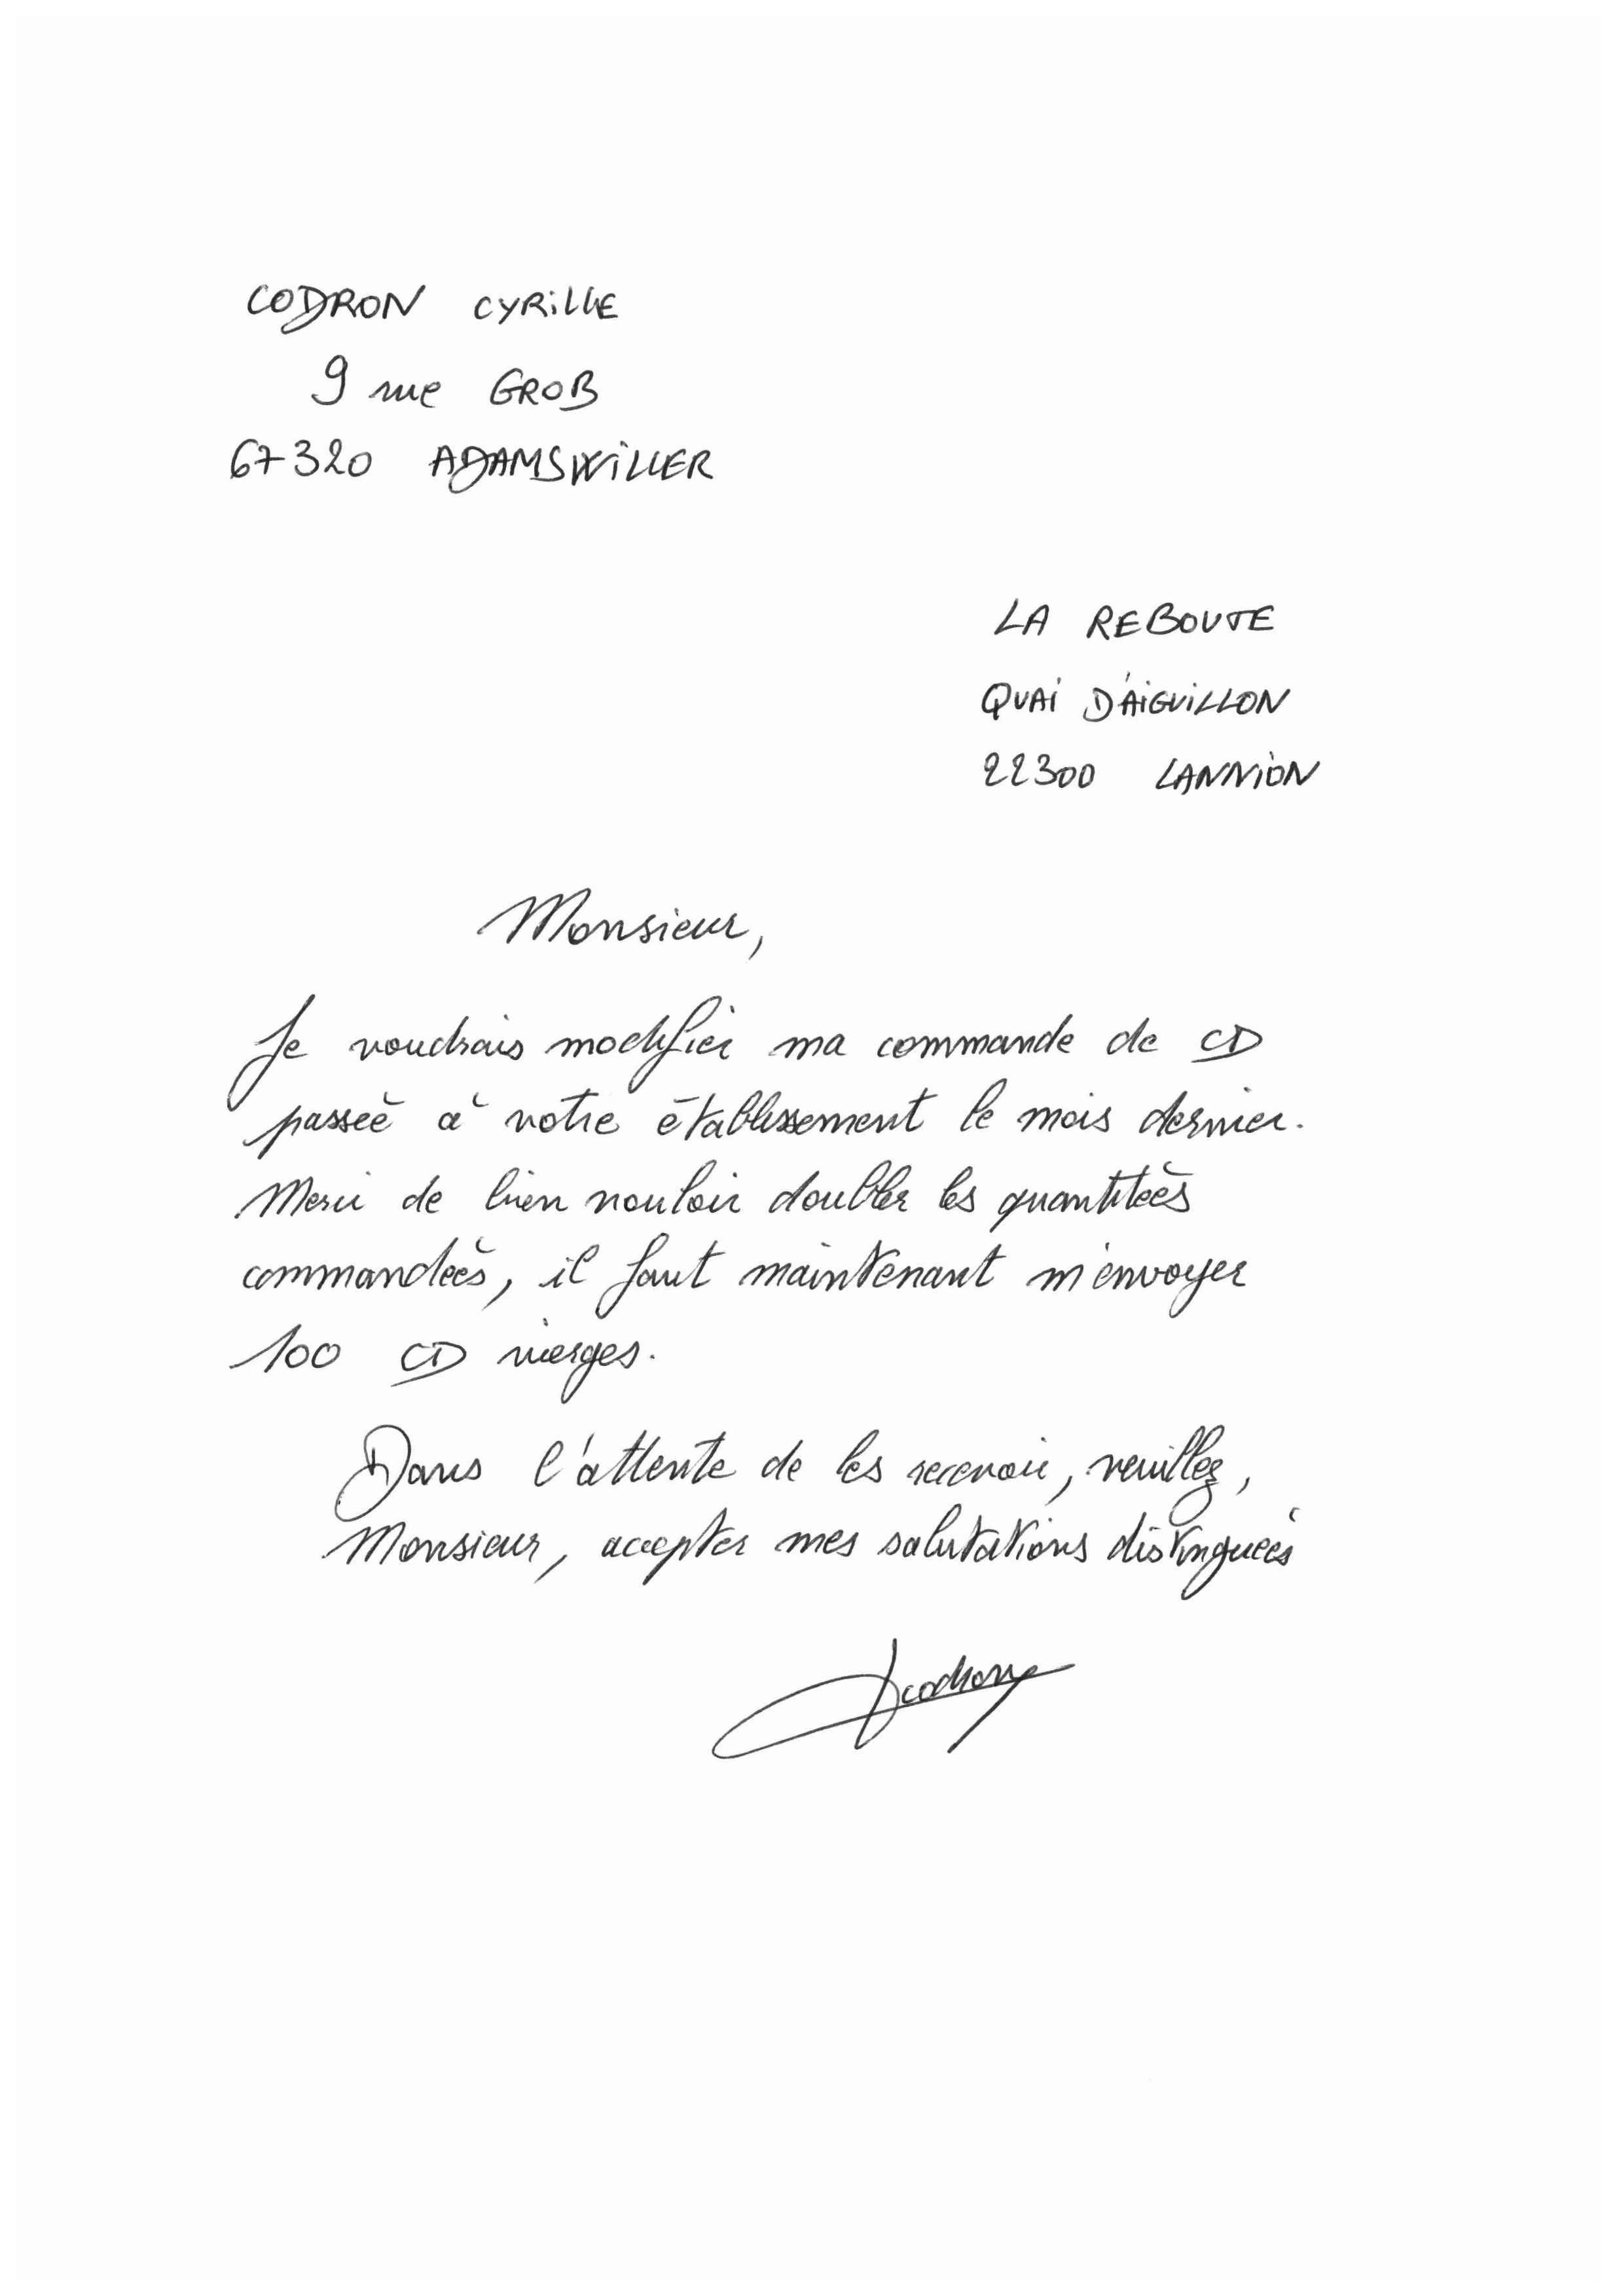 CODRON CYRILLE
9 rue GROB
67320 ADAMSWILLER
LA REBOUTE
QUAI D'AIGUILLON
22300 LANNION
Monsieur,
Je voudrais modifier ma commande de CD
passée à votre établissement le mois dernier.
Merci de bien vouloir doubler les quantitées
commandées, il faut maintenant m'envoyer
100 CD vierges.
Dans l'attente de les recevoir, veuillez,
Monsieur, accepter mes salutations distinguées
codron